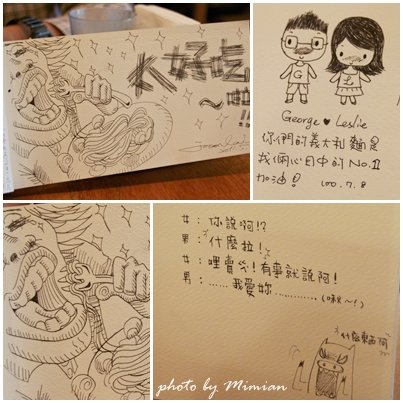 大好吃
~啦!!
G
L
George ♥ Leslie
你們的義大利麵是
我倆心目中的No.1
加油!
100.7.8
女:你說啊!?
男:什麼拉!
女:哩賣ㄍ!有事就說阿!
男:……我愛妳…………(啾~!)
什麼東西阿
photo by Mimian